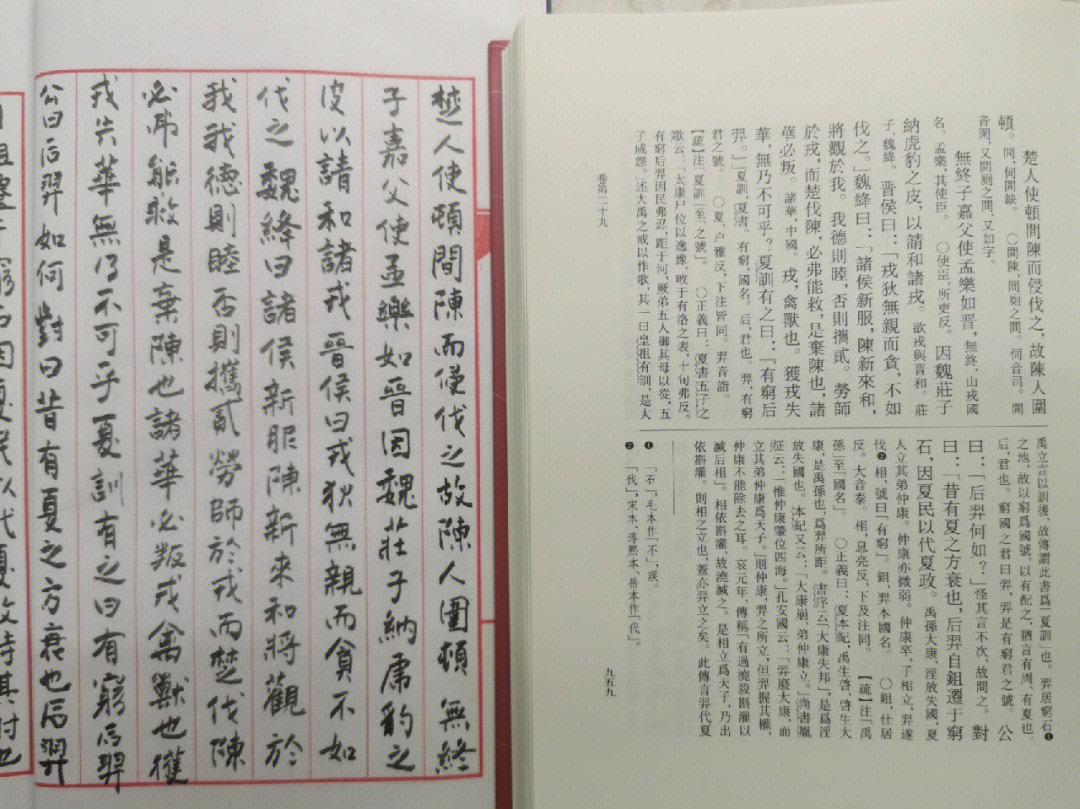 楚人使頓間陳而侵伐之故陳人圍頓無終
子嘉父使孟樂如晉因魏莊子納虎豹之
皮以請和諸戎晉侯曰戎狄無親而貪不如
伐之魏絳曰諸侯新服陳新來和將觀於
我我德則睦否則攜貳勞師於戎而楚伐陳
必弗能救是棄陳也諸華必叛戎禽獸也獲
戎失華無乃不可乎夏訓有之曰有窮后羿
公曰后羿如何對曰昔有夏之方衰也后羿
因夏民以代夏政恃其射也
楚人使頓間陳而侵伐之,故陳人圍
頓。間,伺間缺。 ○間陳,間厠之間。伺音司。間
音閑,又間厠之間,又如字。
無終子嘉父使孟樂如晉,無終,山戎國
名。孟樂,其使臣。 ○使臣,所吏反。 因魏莊子
納虎豹之皮,以請和諸戎。欲戎與晉和。莊
子,魏絳。 晉侯曰:「戎狄無親而貪,不如
伐之。」魏絳曰:「諸侯新服,陳新來和,
將觀於我。我德則睦,否則攜貳。勞師
於戎,而楚伐陳,必弗能救,是棄陳也,諸
華必叛。諸華,中國。 戎,禽獸也。獲戎失
華,無乃不可乎?夏訓有之曰:『有窮后
羿。』」夏訓,夏書。有窮,國名。后,君也。羿,有窮
君之號。 ○夏,户雅反,下注皆同。 羿音詣。
【疏】注「夏訓」至「之號」。 ○正義曰:夏書五子之
歌云:「太康尸位以逸豫,畋于有洛之表,十旬弗反。
有窮后羿因民弗忍,距于河,厥弟五人御其母以從,五
子咸怨。」述大禹之戒以作歌,其一曰皇祖有訓,是大
禹立言以訓後,故傳謂此書爲「夏訓」也。羿居窮石❶
之地,故以窮爲國號,以有配之,猶言有周、有夏也。
后,君也。窮國之君曰羿,羿是有窮君之號。 公
曰:「后羿何如?」怪其言不次,故問之。 對
曰:「昔有夏之方衰也,后羿自鉏遷于窮
石,因夏民以代夏政。禹孫大康,淫放失國,夏
人立其弟仲康。仲康亦微弱。仲康卒,子相立,羿遂
伐❷相,號曰「有窮」。鉏,羿本國名。 ○鉏,仕居
反。大音泰。相,息亮反,下及注同。 【疏】注「禹
孫」至「國名」。 ○正義曰:夏本紀,禹生啓,啓生大
康,是禹孫也,爲羿所距。書序云「大康失邦」,是爲淫
放失國也。本紀又云:「大康崩,弟仲康立。」尚書胤
征云:「惟仲康肇位四海。」孔安國云:「羿廢大康,而
立其弟仲康爲天子。」則仲康,羿之所立,但羿握其權,
仲康不能除去之耳。哀元年,傳稱「有過澆殺斟灌以
滅后相」。相依斟灌,故澆滅之。是相立爲天子,乃出
依斟灌。則相之立也,蓋亦羿立之矣。此傳言羿代夏
❶ 「石」,毛本作「不」,誤。
❷ 「伐」,宋本、淳熙本、岳本作「代」。
卷第二十九
九五九